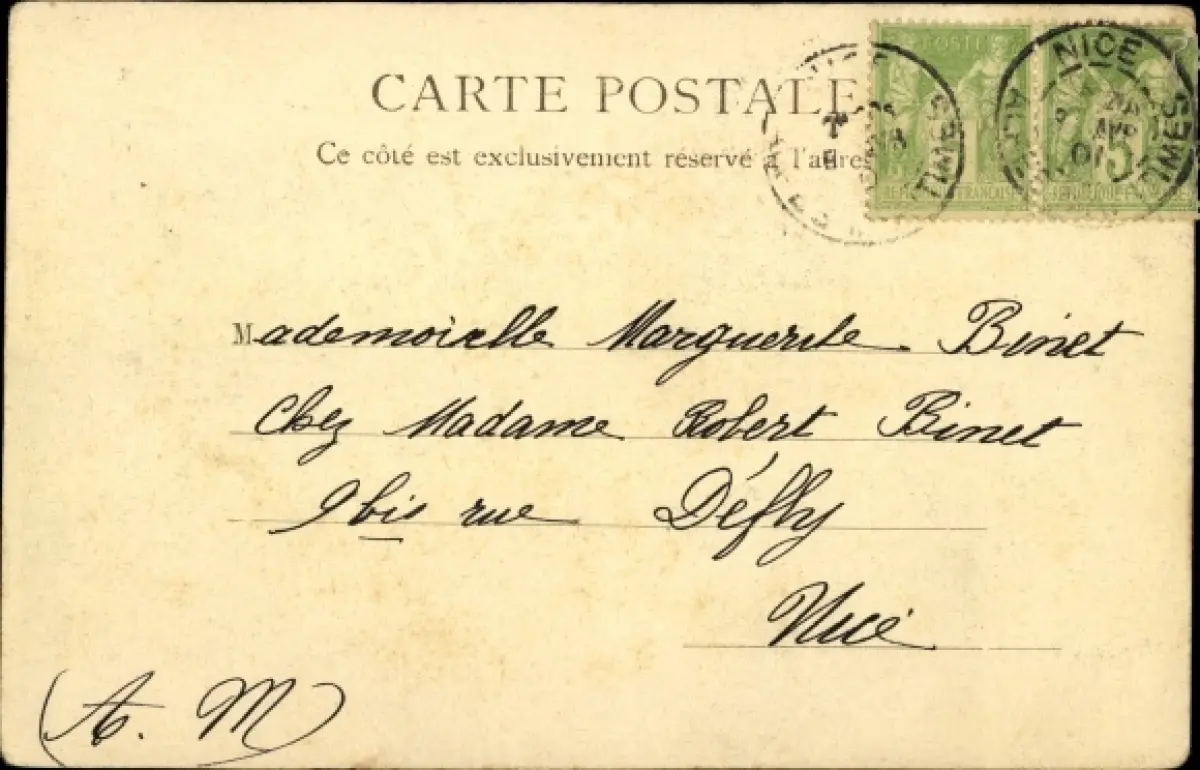 CARTE POSTALE
Ce côté est exclusivement réservé à l'adres
POSTE
NICE
ALPES
MARITIMES
AVR
01
5
REPUBLIQUE FRANÇAISE
Mademoiselle Marguerite Binet
Chez Madame Robert Binet
9 bis rue Défly
Nice
(A. M)